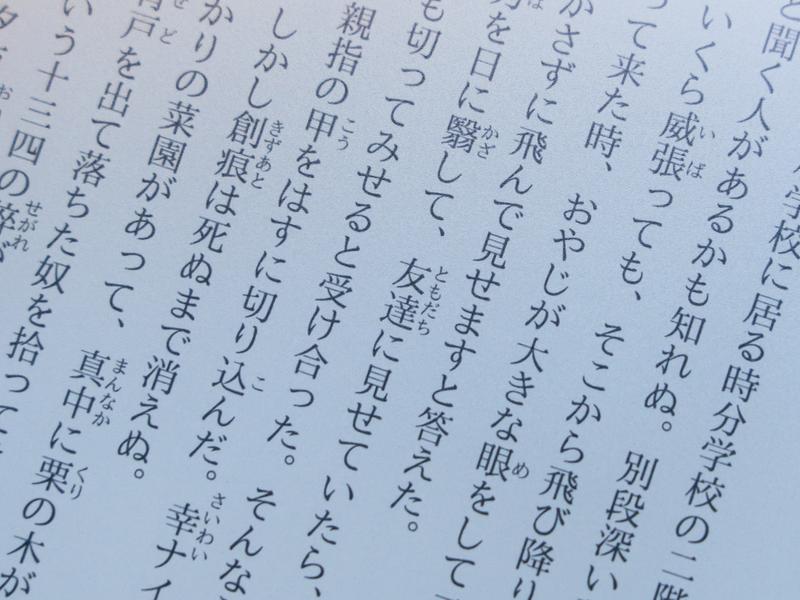 学校に居る時分学校の二階
と聞く人があるかも知れぬ。別段深い
いくら威張っても、そこから飛び降り
って来た時、おやじが大きな眼をして
かさずに飛んで見せますと答えた。
を日に翳して、友達に見せていたら、
も切ってみせると受け合った。そんな
親指の甲をはすに切り込んだ。幸ナイ
しかし創痕は死ぬまで消えぬ。
かりの菜園があって、真中に栗の木が
戸を出て落ちた奴を拾って
いう十三四の倅が